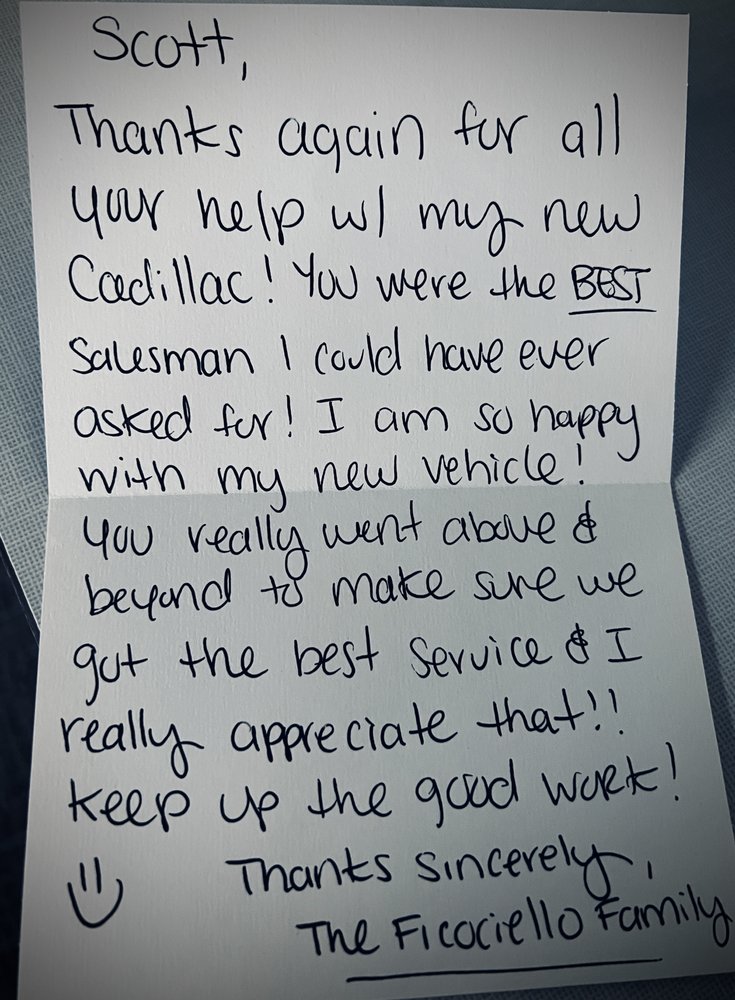 Scott,
Thanks again for all
your help w/ my new
Cadillac! You were the BEST
Salesman I could have ever
asked for! I am so happy
with my new vehicle!
you really went above &
beyond to make sure we
got the best service & I
really appreciate that!!
keep up the good work!
Thanks sincerely,
The Ficociello Family